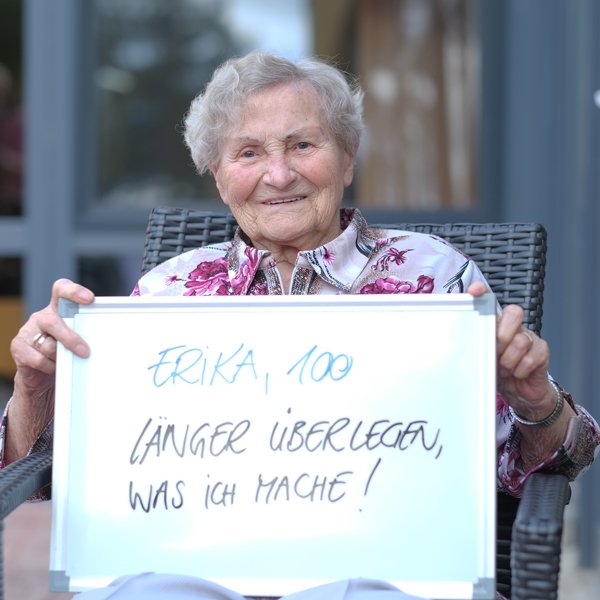 ERIKA, 100
LÄNGER ÜBERLEGEN,
WAS ICH MACHE!